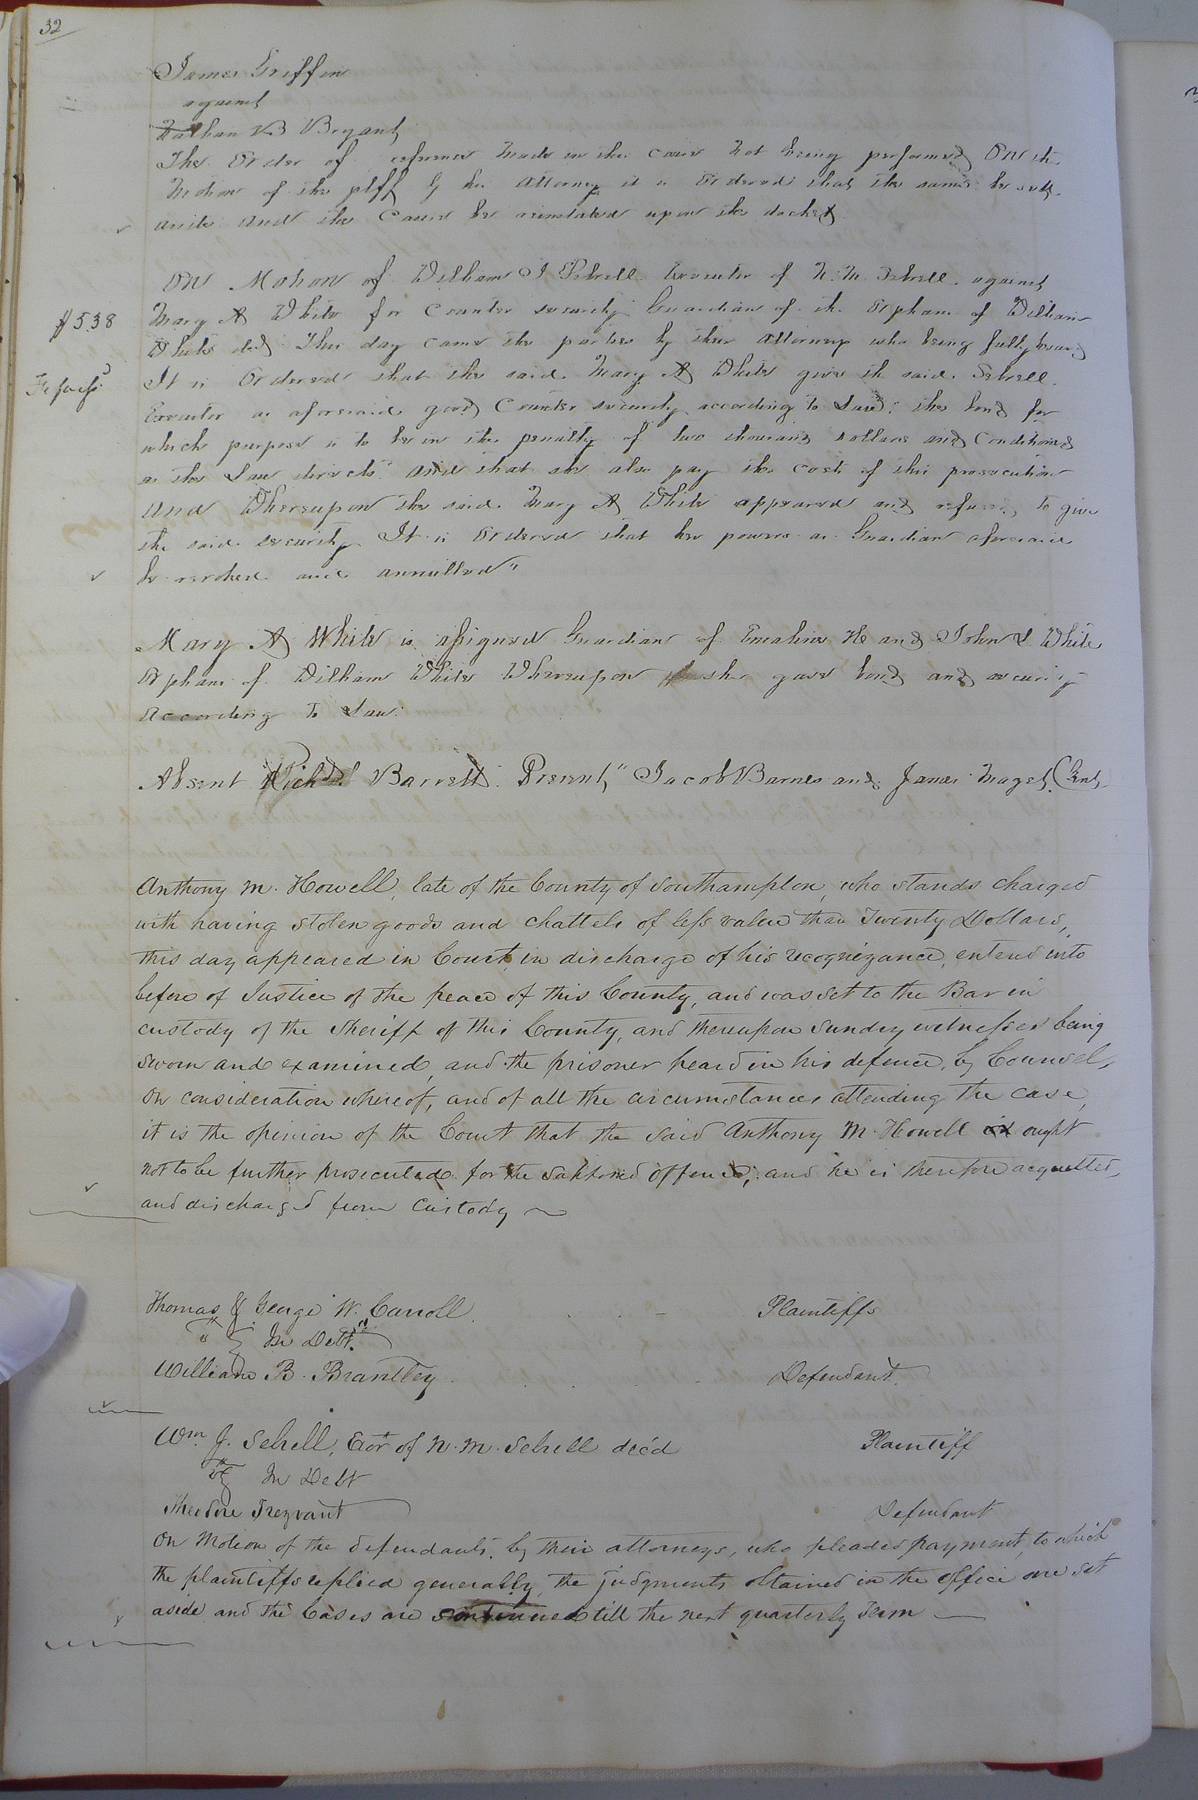 32
James Griffin
against
Nathan B Bryant
The Order of reference made in this cause not being performed On the
Motion of the plff by his Attorney it is Ordered that the same be sett
aside and the Cause be reinstated upon the docket
On Motion of William J Sebrell Executor of N. M. Sebrell against
$5.38
Mary A White for Counter security Guardian of the Orphans of William
White decd This day came the parties by their Attorneys who being fully heard
It is Ordered that the said Mary A White give the said Sebrell
Executor as aforesaid good Counter security according to Law; the bond for
which purpose is to be in the penalty of two thousand dollars and Conditioned
as the Law directs and that she also pay the costs of this prosecution
And Whereupon the said Mary A White appeared and refusing to give
the said security It is Ordered that her powers as Guardian aforesaid
be revoked and annulled"
Mary A White is assigned Guardian of Emeline H and John L White
Orphans of William White Whereupon she gave bond and security
According to Law.
Absent Richd Barrett. Present," Jacob Barnes and James Maget, Gent
Anthony M. Howell, late of the County of Southampton, who stands charged
with having stolen goods and chattels of less value than Twenty Dollars,
this day appeared in Court, in discharge of his recognizance, entered into
before of Justice of the peace of this County, and was set to the Bar in
custody of the Sheriff of this County, and thereupon sundry witnesses being
sworn and examined, and the prisoner heard in his defence, by Counsel,
On consideration whereof, and of all the circumstances attending the case,
it is the opinion of the Court that the said Anthony M. Howell ought
not to be further prosecuted for the supposed offence, and he is therefore acquitted,
and discharged from Custody
Thomas & George W. Carroll Plaintiffs
vs In Debt.
William B. Brantley Defendant.
Wm. J. Sebrell, Exor of N. M. Sebrell dec'd Plaintiff
vs In Debt
Theodore Trezvant Defendant
On Motion of the defendants, by their attorneys, who pleaded payment, to which
the plaintiffs replied generally, the judgments obtained in the office are set
aside and the Cases are continued till the next quarterly Term